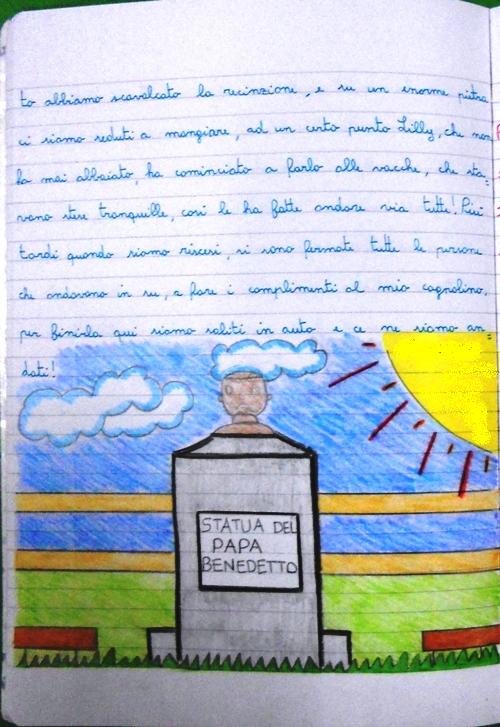 to abbiamo scavalcato la recinzione, e su un enorme pietra
ci siamo seduti a mangiare, ad un certo punto Lilly, che non
ha mai abbaiato, ha cominciato a farlo alle vacche, che sta=
vano stese tranquille, così le ha fatte andare via tutte! Più
tardi quando siamo riscesi, si sono fermate tutte le persone
che andavano in su, a fare i complimenti al mio cagnolino,
per finirla qui siamo saliti in auto e ce ne siamo an=
dati!
STATUA DEL
PAPA
BENEDETTO